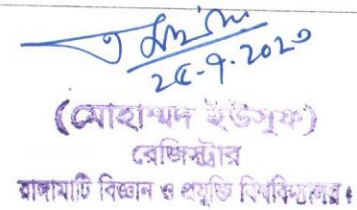 ২৫-৭-২০২৩
(মোহাম্মদ ইউসুফ)
রেজিস্ট্রার
রাঙ্গামাটি বিজ্ঞান ও প্রযুক্তি বিশ্ববিদ্যালয়।